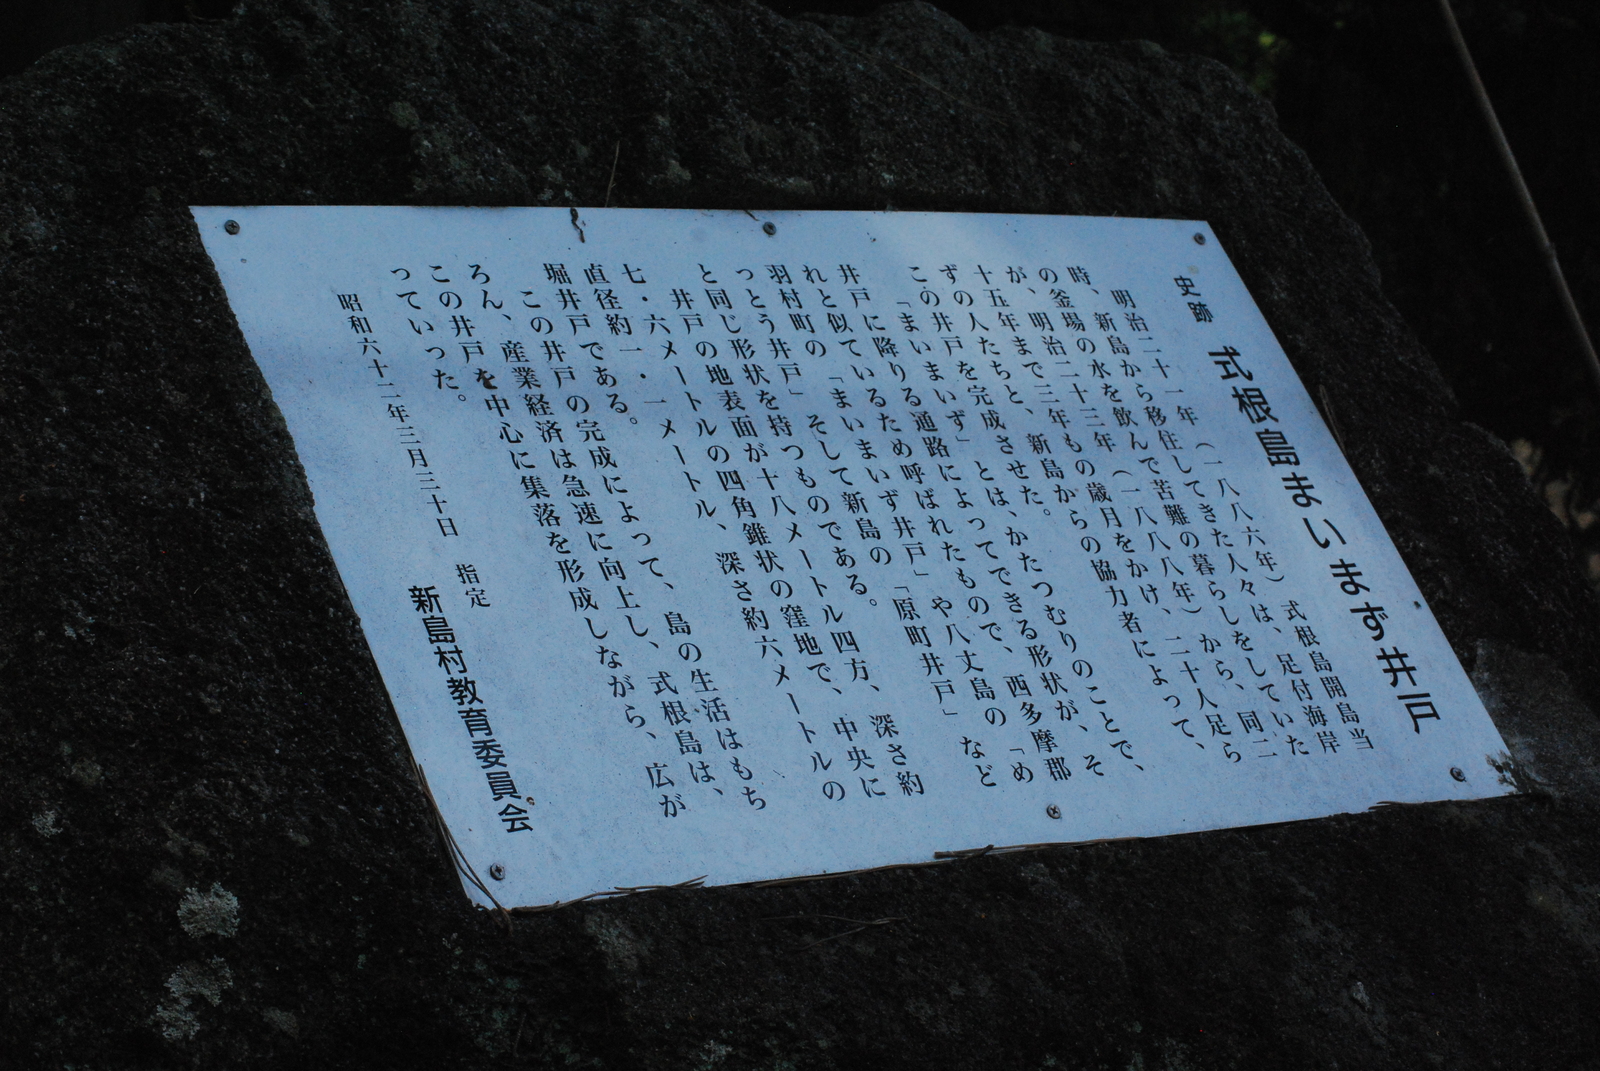 史跡 式根島まいまず井戸
明治二十一年（一八八六年）式根島開島当
時、新島から移住してきた人々は、足付海岸
の釜場の水を飲んで苦難の暮らしをしていた
が、明治二十三年（一八八八年）から、同二
十五年まで三年もの歳月をかけ、二十人足ら
ずの人たちと、新島からの協力者によって、
この井戸を完成させた。
「まいまいず」とは、かたつむりのことで、
井戸に降りる通路によってできる形状が、そ
れと似ているため呼ばれたもので、西多摩郡
羽村町の「まいまいず井戸」や八丈島の「め
っとう井戸」そして新島の「原町井戸」など
と同じ形状を持つものである。
井戸の地表面が十八メートル四方、深さ約
七・六メートルの四角錐状の窪地で、中央に
直径約一・一メートル、深さ約六メートルの
堀井戸である。
この井戸の完成によって、島の生活はもち
ろん、産業経済は急速に向上し、式根島は、
この井戸を中心に集落を形成しながら、広が
っていった。
昭和六十二年三月三十日 指定
新島村教育委員会